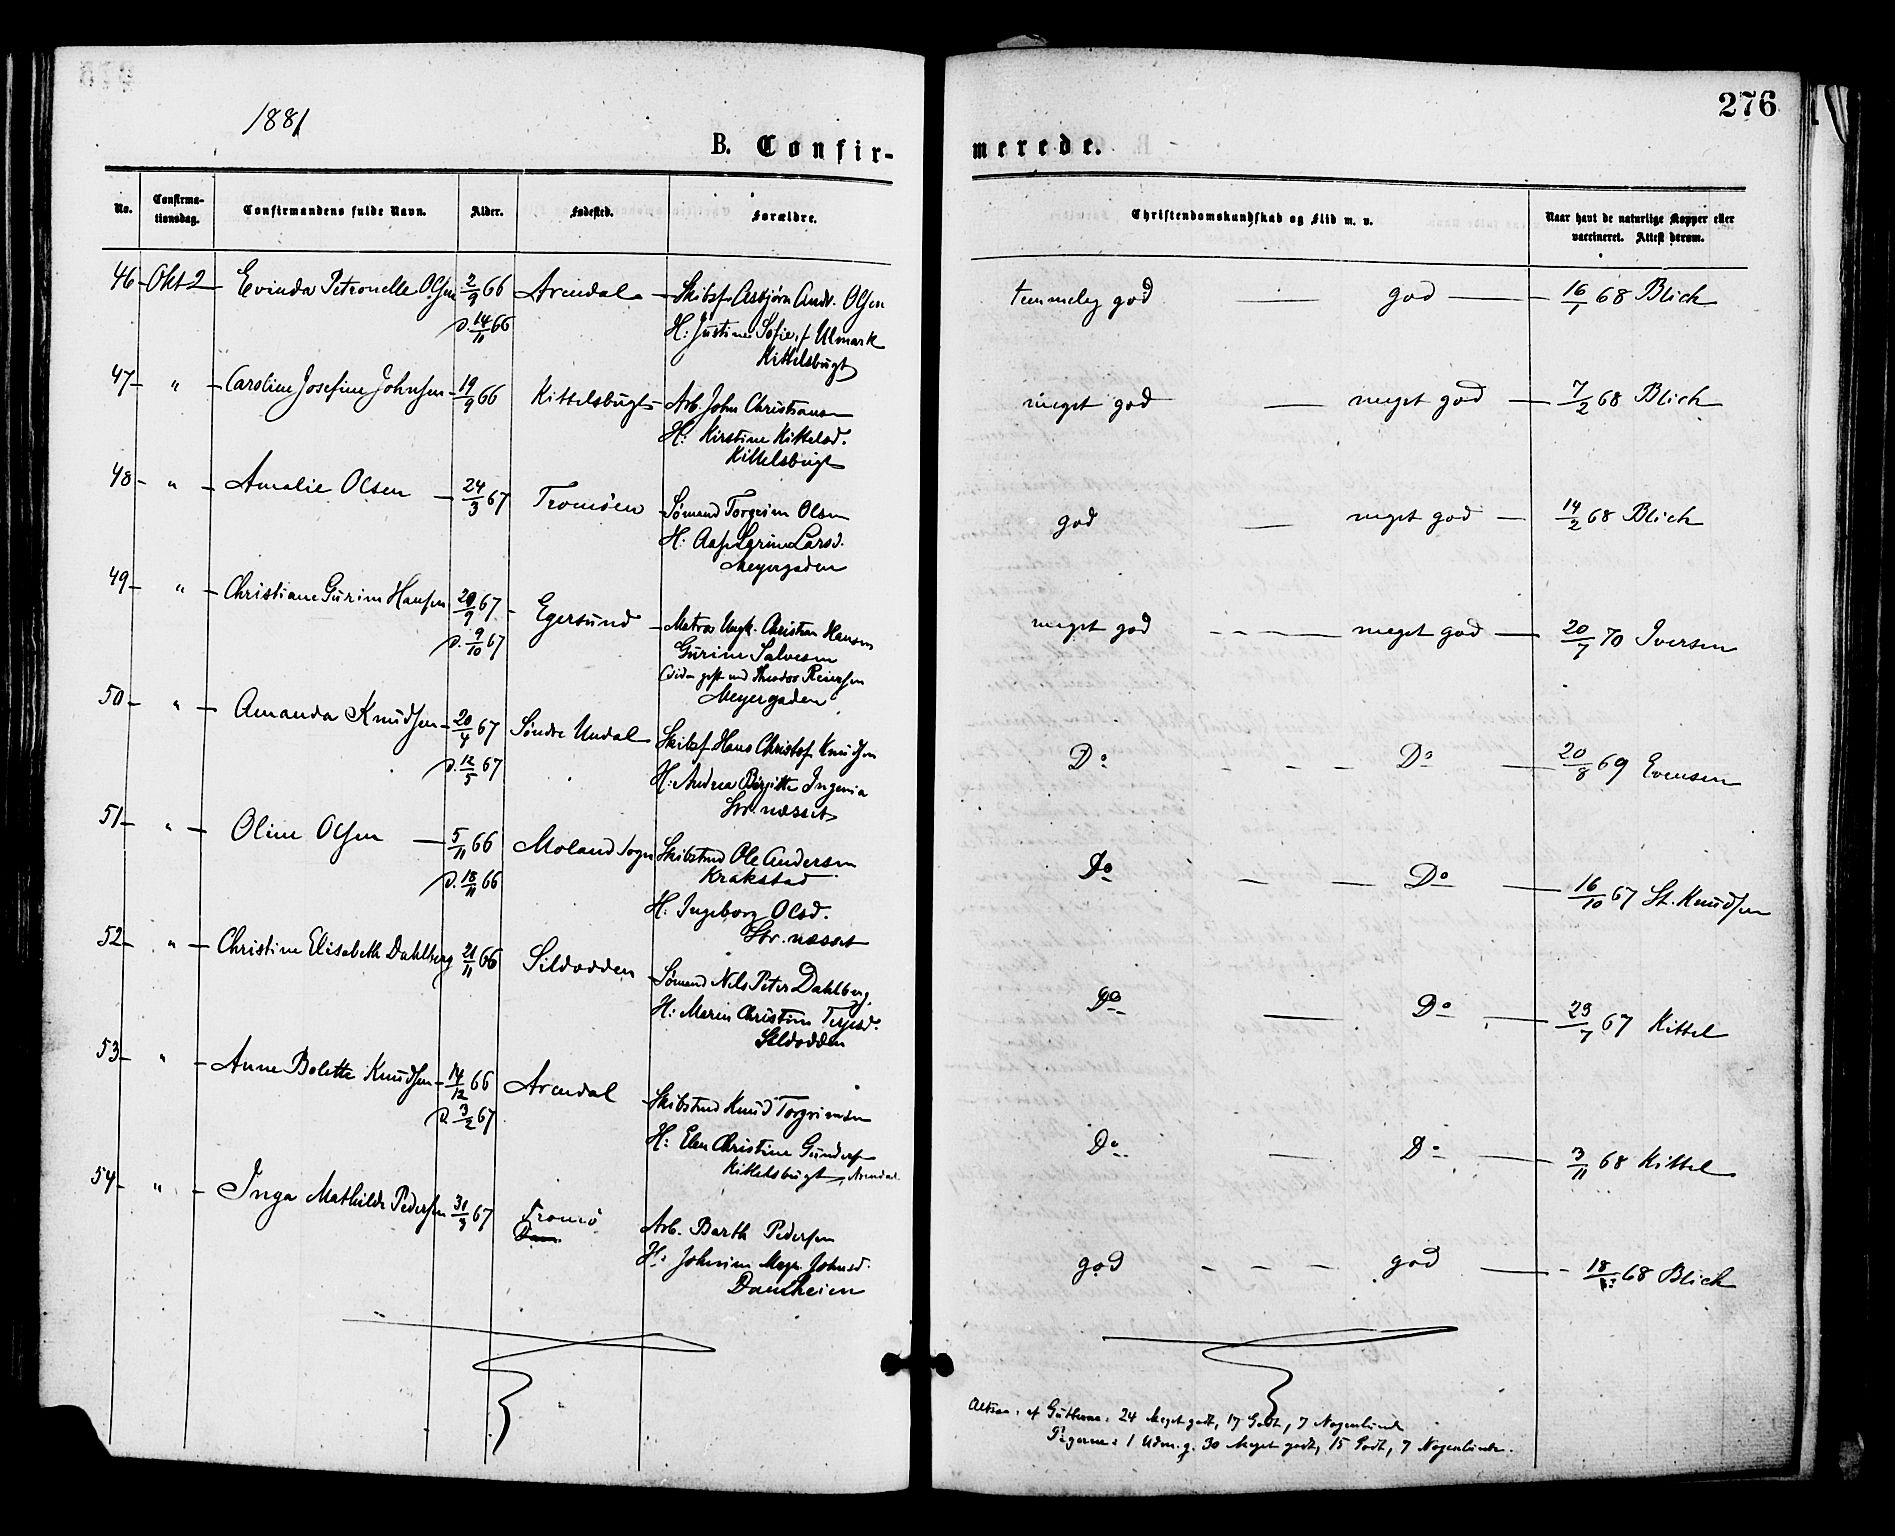 276
1881
B. Confir-
merede.
No.
Confirma-
tionsdag.
Confirmandens fulde Navn.
Alder.
Fødested.
Forældre.
Christendomskundskab og Flid m. v.
Naar havt de naturlige Kopper eller
vaccineret. Attest derom.
46 Okt 2 Evinda Petronelle Olsen 2/9 66 Arendal Skibsf. Asbjørn Andr. Olsen temmelig god — god — 16/1 68 Blich
d. 14/11 66 H: Justine Sofie f. Ulmark
Kittelsbugt
47 " Caroline Josefine Johnsen 19/9 66 Kittelsbugt Arb. John Christiansen meget god — meget god — 7/2 68 Blich
H: Kirstine Kittelsd.
Kittelsbugt
48 " Amalie Olsen 24/3 67 Tromøen Sømand Torgrim Olsen god — meget god — 14/2 68 Blich
H: Larsd.
Meyergaden
49 " Christiane Gurine Hansen 20/9 67 Egersund Matros Ungk. Christen Hansen meget god — meget god — 20/7 70 Iversen
d. 9/10 67 Gurine Salvesen
(siden gift med Theodor Reiersen
Meyergaden
50 " Amanda Knudsen 20/4 67 Søndre Undal Skibsf. Hans Christof. Knudsen Do — Do — 20/8 69 Evensen
d. 12/5 67 H: Andrea Birgitte Ingeria
Str. næsset
51 " Oline Olsen 5/11 66 Moland Sogn Skibstmd Ole Andersen Do — Do — 16/10 67 St. Knudsen
d. 18/11 66 Krakstad
H: Ingeborg Olsd.
Str. næsset
52 " Christine Elisabeth Dahlberg 21/11 66 Sildodden Sømand Nils Peter Dahlberg. Do — Do — 23/7 67 Kittel
H: Maren Christine Terjesd.
Sildodden
53 " Anne Bolette Knudsen 14/12 66 Arendal Skibstmd Knud Torgrimsen Do — Do — 3/11 68 Kittel
d. 3/2 67 H: Elen Christine Gunders
Kittelsbugt, Arendal
54 " Inga Mathilde Pedersen 31/3 67 Tromø Arb. Barth Pedersen god — god — 18/ 68 Blich
H: Johnsd.
Dantheien
Altsaa: af Gutterne: 24 Meget godt, 17 Godt, 7 Nogenlunde
Pigerne: 1 Udm. g. 30 Meget godt, 15 Godt, 7 Nogenlunde.